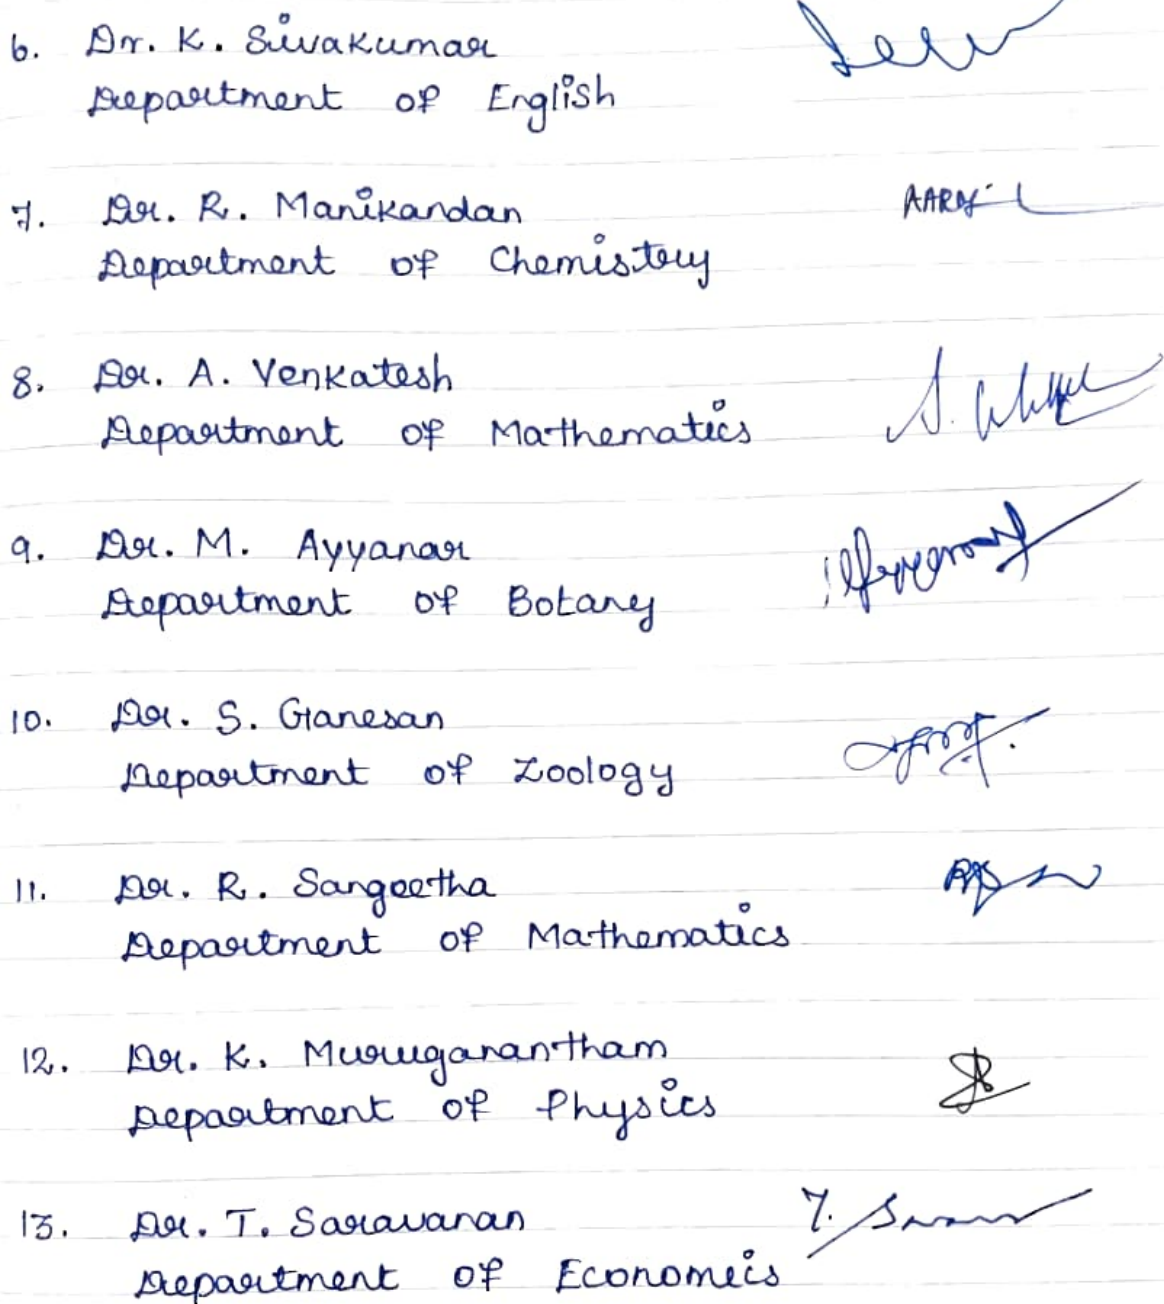 6. Dr. K. Sivakumar
Department of English
7. Dr. R. Manikandan
Department of Chemistry
8. Dr. A. Venkatesh
Department of Mathematics
9. Dr. M. Ayyanar
Department of Botany
10. Dr. S. Ganesan
Department of Zoology
11. Dr. R. Sangeetha
Department of Mathematics
12. Dr. K. Muruganantham
Department of Physics
13. Dr. T. Saravanan
Department of Economics